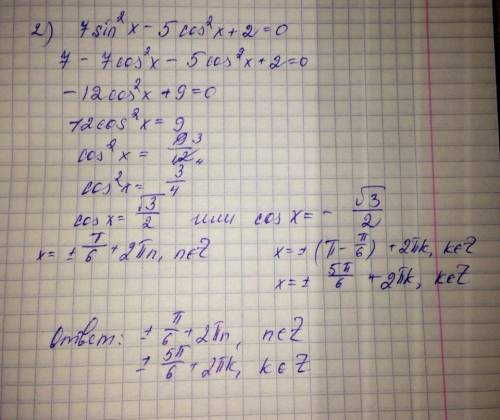 2) 7sin²x - 5cos²x + 2 = 0
7 - 7cos²x - 5cos²x + 2 = 0
-12cos²x + 9 = 0
12cos²x = 9
cos²x = 9 3/12 4
cos²x = 3/4
cos x = √3/2 или cos x = - √3/2
x = ± π/6 + 2πn, n∈Z x = ± (π - π/6) + 2πk, k∈Z
x = ± 5π/6 + 2πk, k∈Z
Ответ: ± π/6 + 2πn, n∈Z
± 5π/6 + 2πk, k∈Z